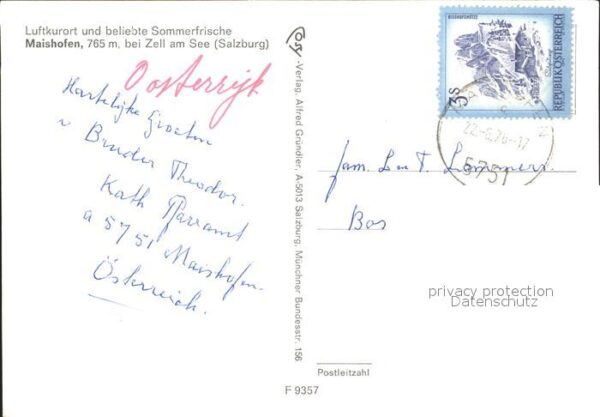 Luftkurort und beliebte Sommerfrische
Maishofen, 765 m, bei Zell am See (Salzburg)
Oosterrijk
Hartelijke Groeten
v Bruder Theodor.
Kath Pfarramt
a 5751 Maishofen.
Österreich.
Cosy-Verlag, Alfred Gründler, A-5013 Salzburg, Münchner Bundesstr. 156
3 S
REPUBLIK ÖSTERREICH
BISCHOFSMÜTZE
5751
fam. L. T. Lammers
Bos
privacy protection
Datenschutz
Postleitzahl
F 9357